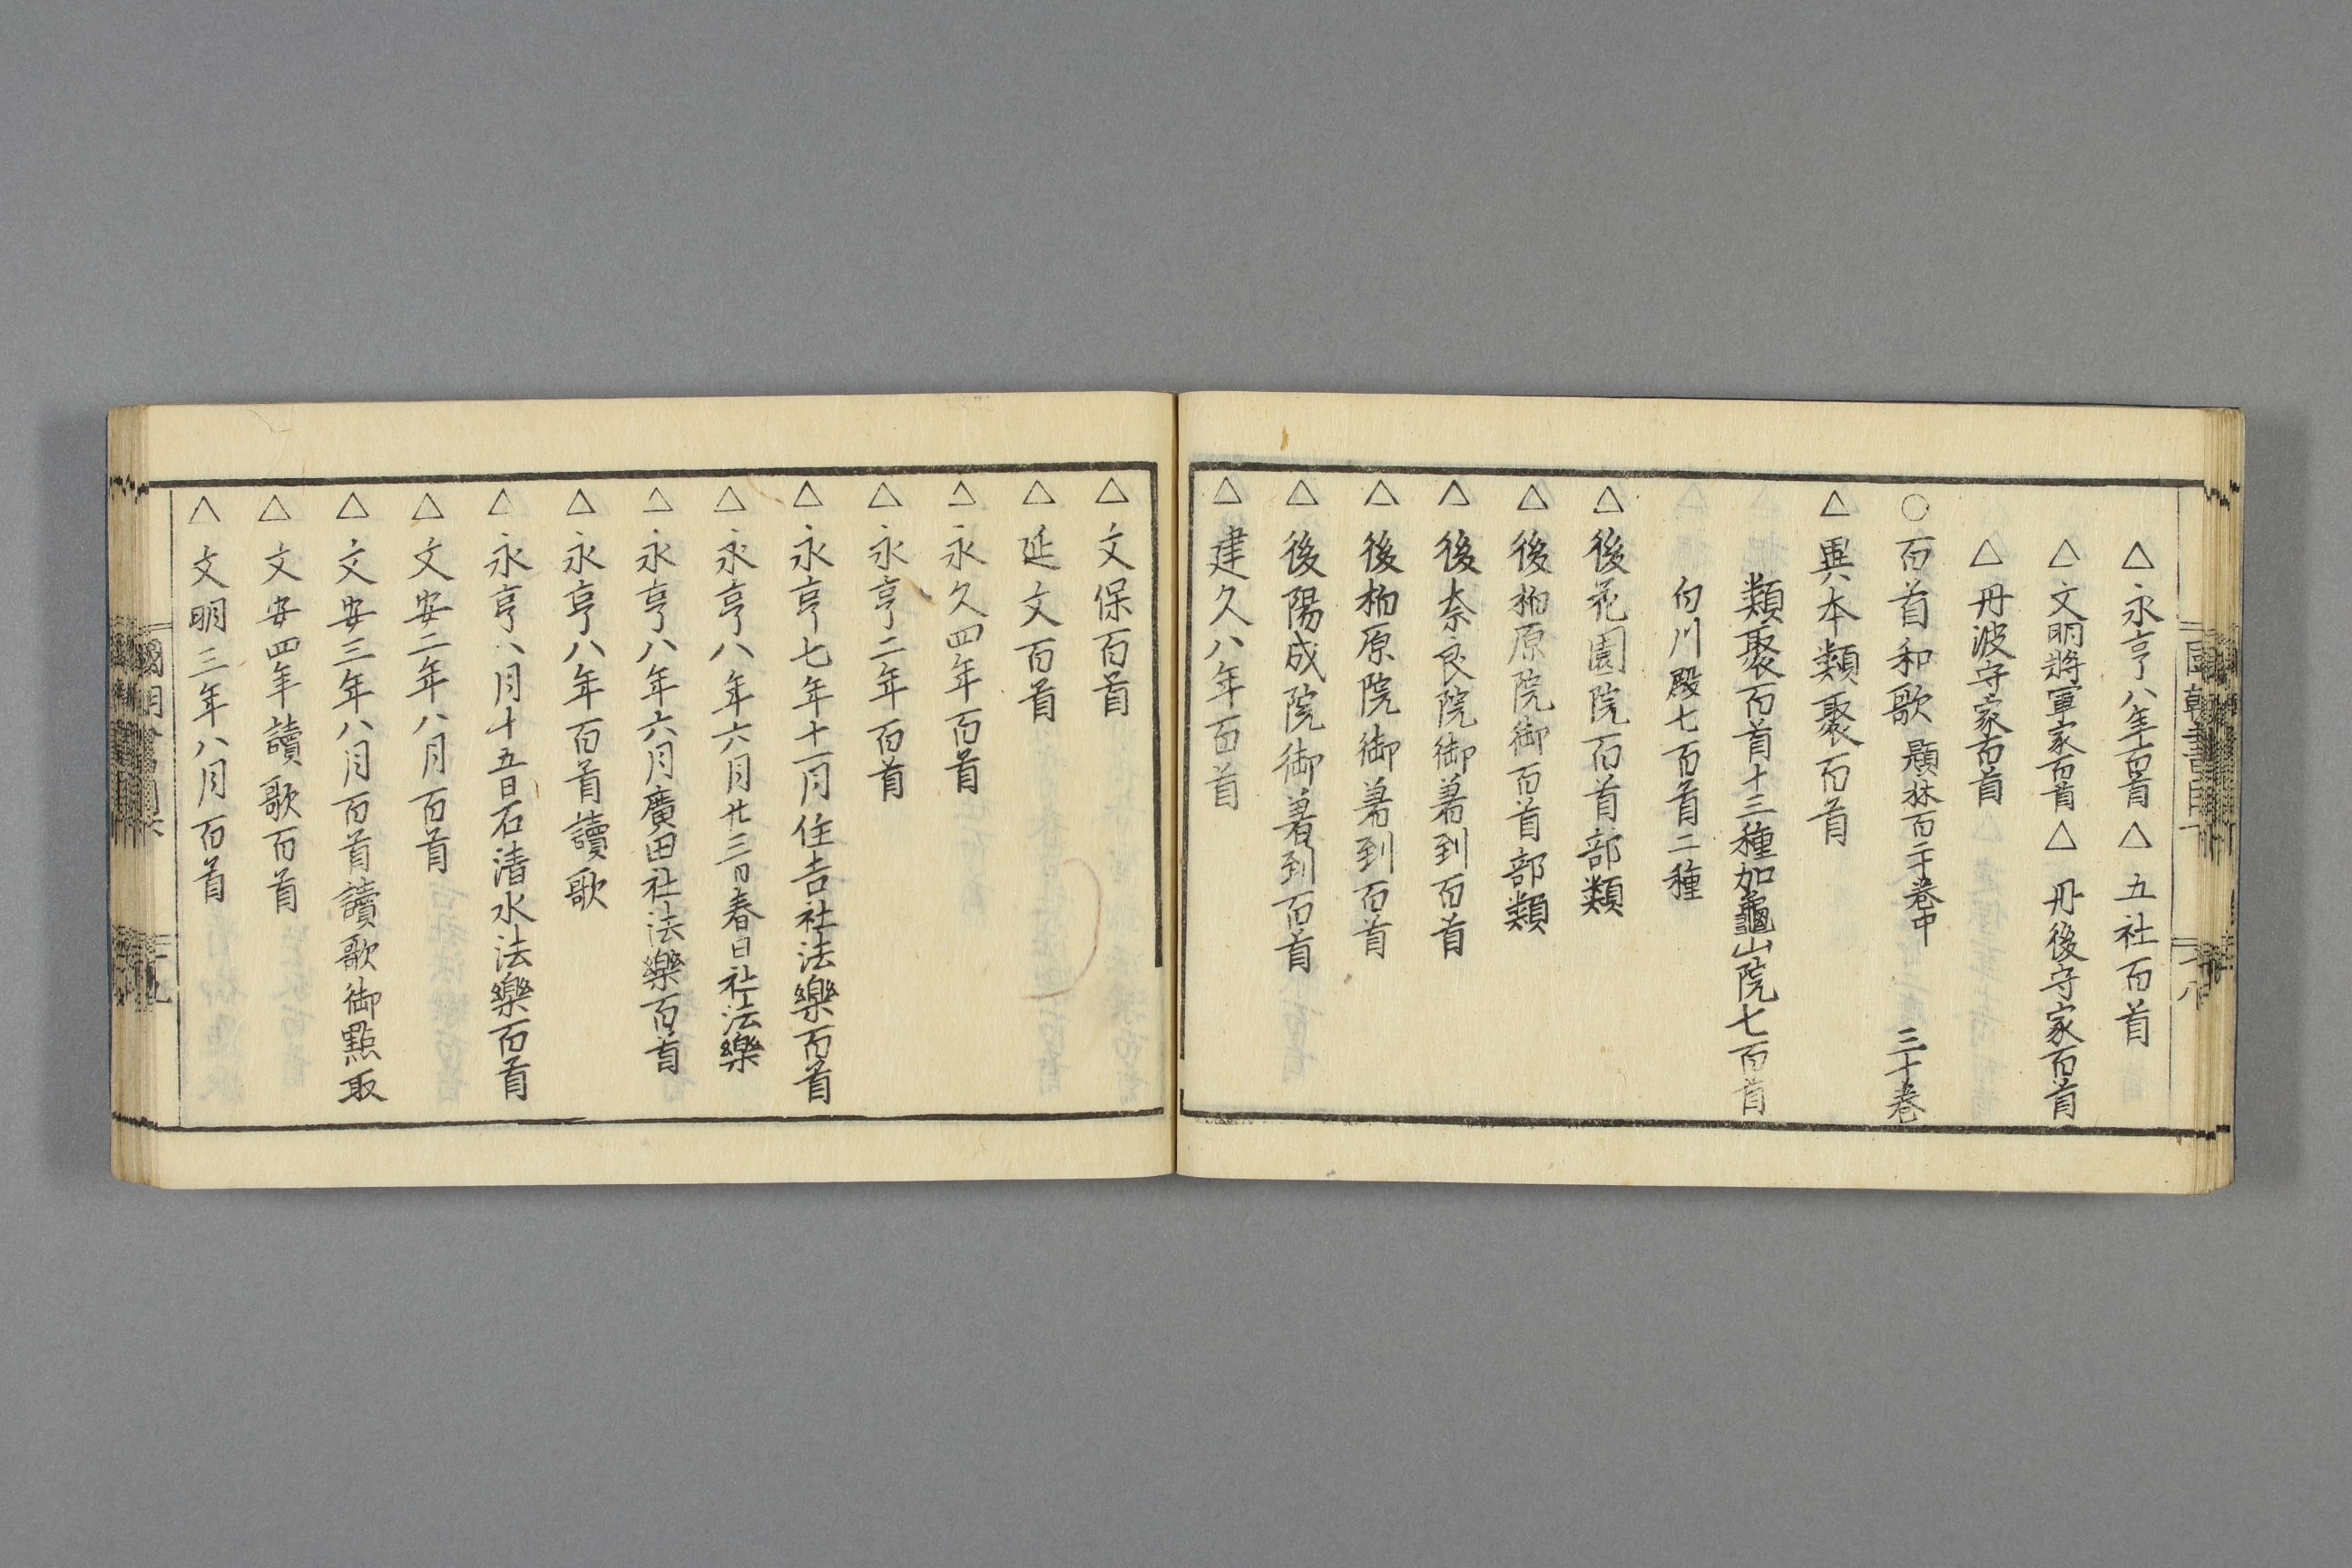 △永亨八年百首△五社百首
△文明將軍家百首△丹後守家百首
△丹波守家百首
○百首和歌 題林百二十卷中 三十卷
△異本類聚百首
類聚百首十三種加龜山院七百首
白川殿七百首二種
△後花園院百首部類
△後柏原院御百首部類
△後奈良院御著到百首
△後柏原院御著到百首
△後陽成院御著到百首
△建久八年百首
△文保百首
△延文百首
△永久四年百首
△永亨二年百首
△永亨七年十一月住吉社法樂百首
△永亨八年六月廿三日春日社法樂
△永亨八年六月廣田社法樂百首
△永亨八年百首讀歌
△永亨八月十五日石清水法樂百首
△文安二年八月百首
△文安三年八月百首讀歌御點取
△文安四年讀歌百首
△文明三年八月百首